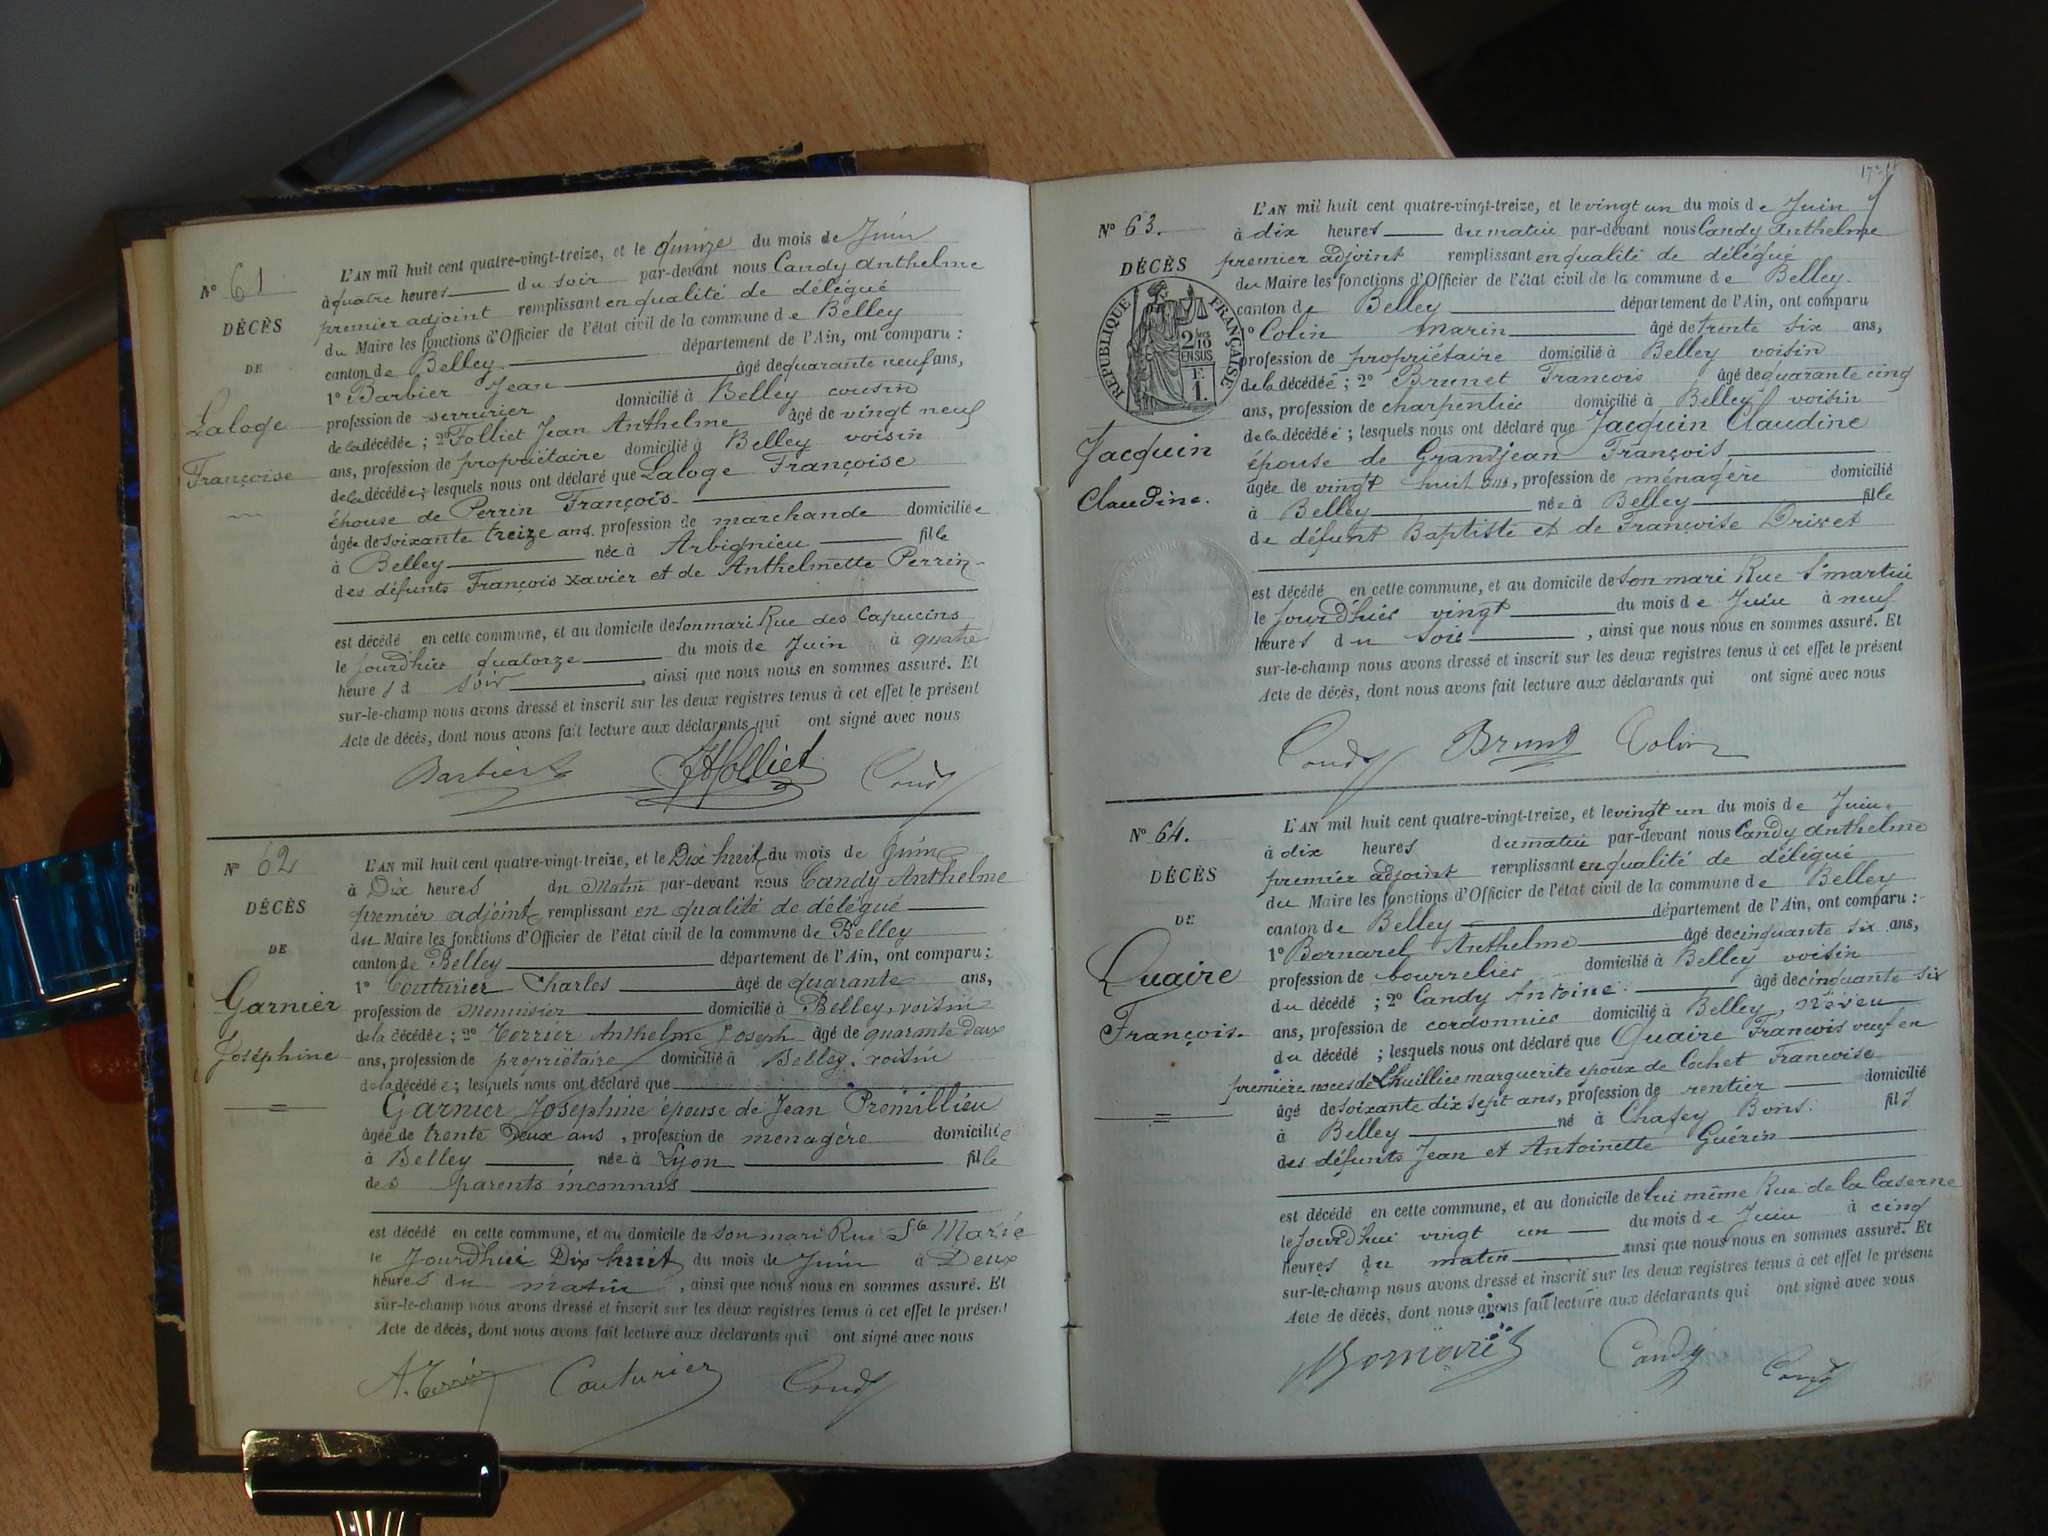 N° 61
DÉCÈS
DE
Laloge
Françoise
L'AN mil huit cent quatre-vingt-treize, et le quinze du mois de Juin
à quatre heures du soir par-devant nous Candy Anthelme
premier adjoint remplissant en qualité de délégué
du Maire les fonctions d'Officier de l'état civil de la commune de Belley
canton de Belley département de l'Ain, ont comparu :
1° Barbier Jean âgé de quarante neuf ans,
profession de serrurier domicilié à Belley cousin
de la décédée ; 2° Folliet Jean Anthelme âgé de vingt neuf
ans, profession de propriétaire domicilié à Belley voisin
de la décédée ; lesquels nous ont déclaré que Laloge Françoise
épouse de Perrin François
âgée de soixante treize ans, profession de marchande domiciliée
à Belley née à Arbignieu fille
des défunts François Xavier et de Anthelmette Perrin
est décédé en cette commune, et au domicile de son mari Rue des Capucins
le jourd'hier quatorze du mois de Juin à quatre
heures d soir, ainsi que nous nous en sommes assuré. Et
sur-le-champ nous avons dressé et inscrit sur les deux registres tenus à cet effet le présent
Acte de décès, dont nous avons fait lecture aux déclarants qui ont signé avec nous
Barbier JAfolliet Candy
N° 62
DÉCÈS
DE
Garnier
Joséphine
L'AN mil huit cent quatre-vingt-treize, et le Dix huit du mois de Juin
à Dix heures du Matin par-devant nous Candy Anthelme
premier adjoint remplissant en qualité de délégué
du Maire les fonctions d'Officier de l'état civil de la commune de Belley
canton de Belley département de l'Ain, ont comparu :
1° Couturier Charles âgé de quarante ans,
profession de Menuisier domicilié à Belley, voisin
de la décédée ; 2° Terrier Anthelme Joseph âgé de quarante deux
ans, profession de propriétaire domicilié à Belley, voisin
de la décédée ; lesquels nous ont déclaré que
Garnier Joséphine épouse de Jean Prémillieu
âgée de trente Deux ans, profession de menagère domiciliée
à Belley née à Lyon fille
des parents inconnus
est décédé en cette commune, et au domicile de son mari Rue Ste Marie
le Jourdhui Dix huit du mois de Juin à Deux
heures du matin, ainsi que nous nous en sommes assuré. Et
sur-le-champ nous avons dressé et inscrit sur les deux registres tenus à cet effet le présent
Acte de décès, dont nous avons fait lecture aux déclarants qui ont signé avec nous
A. Terrier Couturier Candy
N° 63.
DÉCÈS
RÉPUBLIQUE FRANÇAISE
2/10
EN SUS
F.
1.
Jacquin
Claudine.
L'AN mil huit cent quatre-vingt-treize, et le vingt un du mois de Juin
à dix heures du matin par-devant nous Candy Anthelme
premier adjoint remplissant en qualité de délégué
du Maire les fonctions d'Officier de l'état civil de la commune de Belley.
canton de Belley département de l'Ain, ont comparu
1° Colin Marin âgé de trente six ans,
profession de propriétaire domicilié à Belley voisin
de la décédée ; 2° Brunet François âgé de quarante cinq
ans, profession de charpentier domicilié à Belley voisin
de la décédée ; lesquels nous ont déclaré que Jacquin Claudine
épouse de Grandjean François
âgée de vingt huit ans, profession de ménagère domicilié
à Belley née à Belley fille
de défunt Baptiste et de Françoise
est décédé en cette commune, et au domicile de son mari Rue St martin
le jourd'hier vingt du mois de Juin à neuf
heures du soir, ainsi que nous nous en sommes assuré. Et
sur-le-champ nous avons dressé et inscrit sur les deux registres tenus à cet effet le présent
Acte de décès, dont nous avons fait lecture aux déclarants qui ont signé avec nous
Candy Brunet Colin
N° 64.
DÉCÈS
DE
Quaire
François.
L'AN mil huit cent quatre-vingt-treize, et le vingt un du mois de Juin.
à dix heures du matin par-devant nous Candy Anthelme
premier adjoint remplissant en qualité de délégué
du Maire les fonctions d'Officier de l'état civil de la commune de Belley
canton de Belley département de l'Ain, ont comparu :
1° Bornarel Anthelme âgé de cinquante six ans,
profession de bourrelier domicilié à Belley voisin
du décédé ; 2° Candy Antoine âgé de cinquante six
ans, profession de cordonnier domicilié à Belley, Néveu
du décédé ; lesquels nous ont déclaré que Quaire François veuf en
première noces de Lhuillier marguerite époux de Cochet Françoise
âgé de soixante dix sept ans, profession de rentier domicilié
à Belley né à Chasey Bons. fils
des défunts Jean et Antoinette Guérin
est décédé en cette commune, et au domicile de lui même Rue de la Caserne
le jourd'hui vingt un du mois de Juin à cinq
heures du matin ainsi que nous nous en sommes assuré. Et
sur-le-champ nous avons dressé et inscrit sur les deux registres tenus à cet effet le présent
Acte de décès, dont nous avons fait lecture aux déclarants qui ont signé avec nous
Bornarel Candy Candy